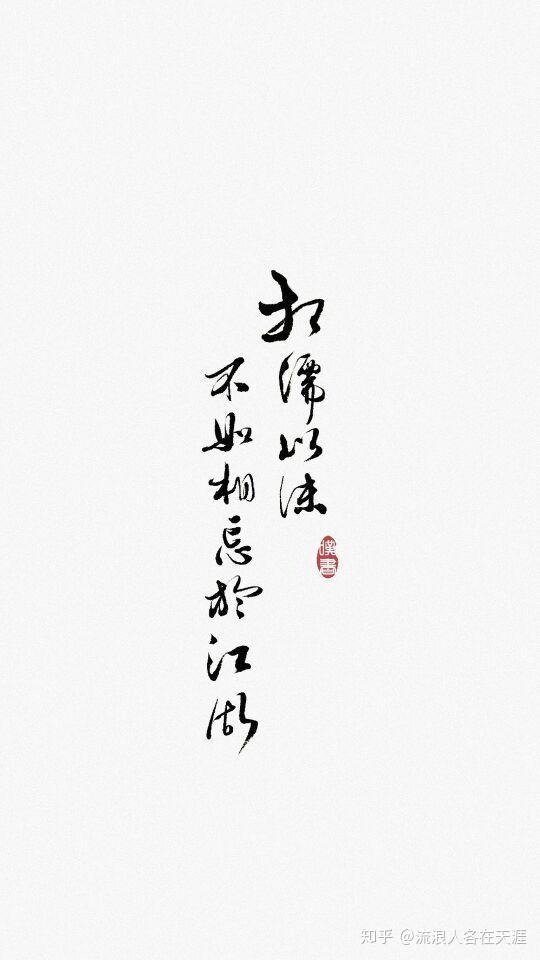 相濡以沫
不如相忘於江湖
漢書
知乎 @流浪人客在天涯